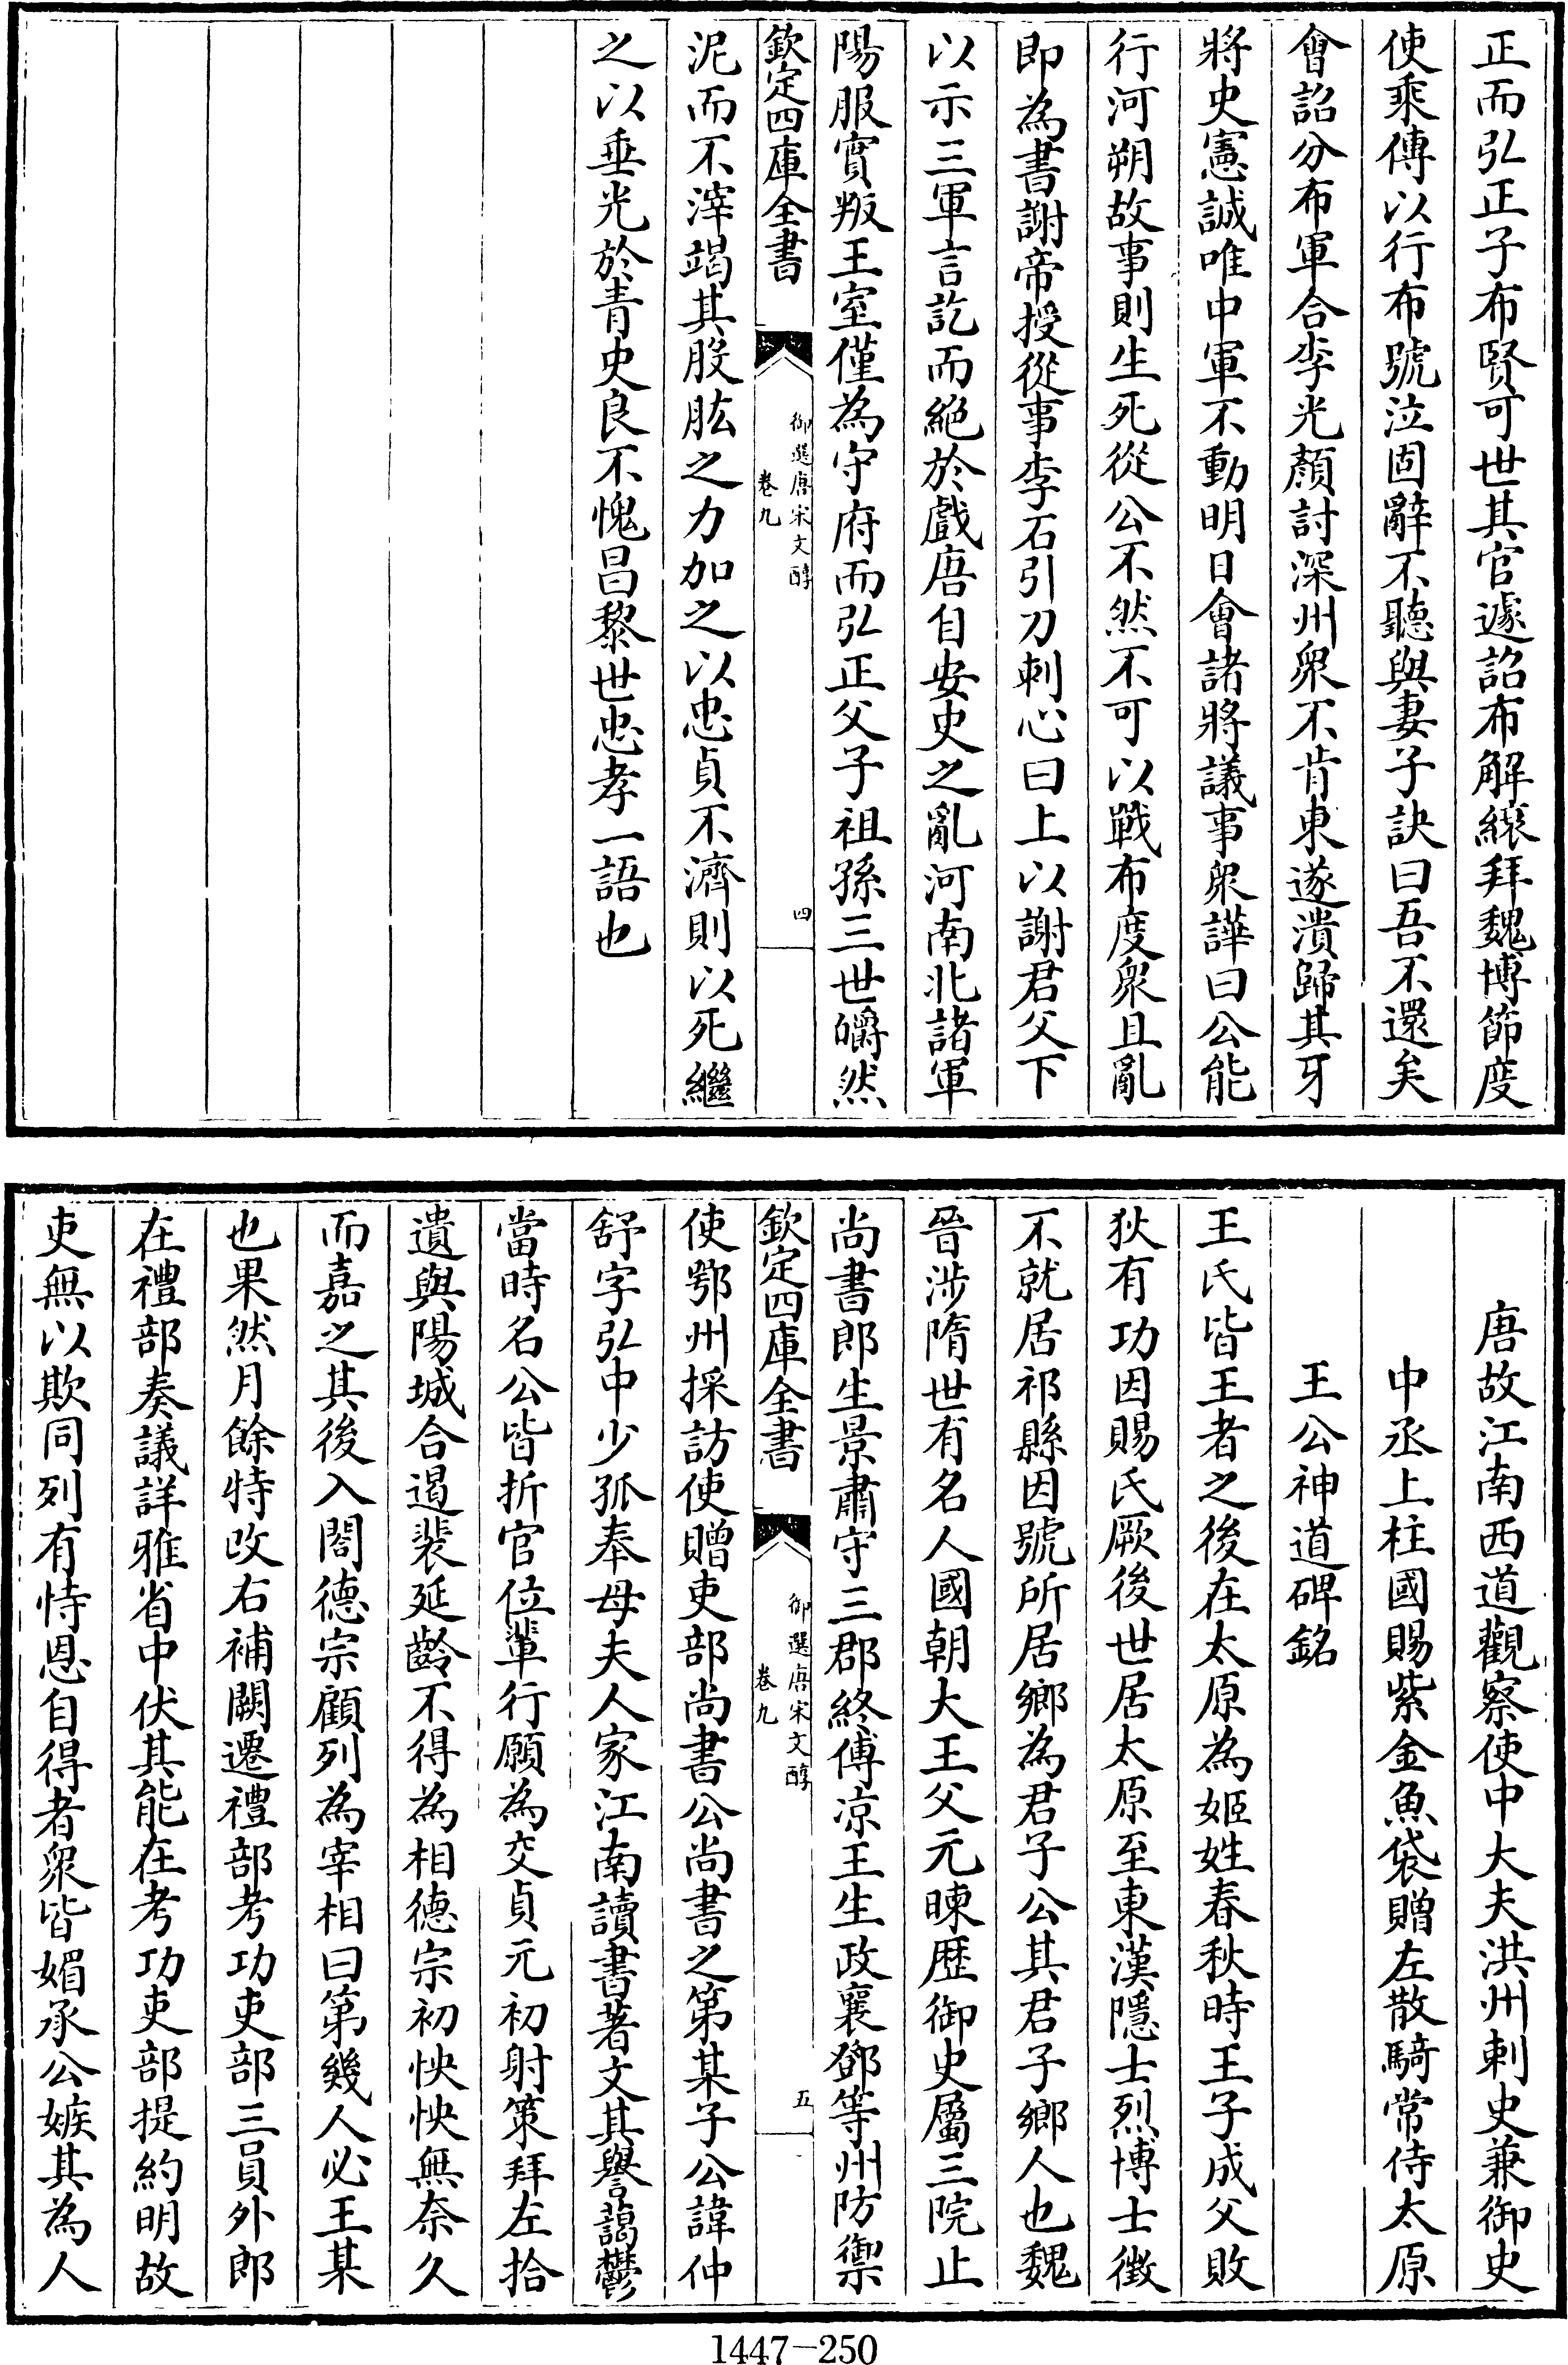 正而弘正子布賢可世其官遽詔布解縗拜魏博節度
使乘傳以行布號泣固辭不聽與妻子訣曰吾不還矣
會詔分布軍合李光顏討深州衆不肯東遂潰歸其牙
將史憲誠唯中軍不動明日會諸將議事衆譁曰公能
行河朔故事則生死從公不然不可以戰布度衆且亂
即為書謝帝授從事李石引刀刺心曰上以謝君父下
以示三軍言訖而絕於戲唐自安史之亂河南北諸軍
陽服實叛王室僅為守府而弘正父子祖孫三世皭然
欽定四庫全書
御選唐宋文醇
卷九
四
泥而不滓竭其股肱之力加之以忠貞不濟則以死繼
之以垂光於青史良不愧昌黎世忠孝一語也
唐故江南西道觀察使中大夫洪州刺史兼御史
中丞上柱國賜紫金魚袋贈左散騎常侍太原
王公神道碑銘
王氏皆王者之後在太原為姬姓春秋時王子成父敗
狄有功因賜氏厥後世居太原至東漢隱士烈博士徵
不就居祁縣因號所居鄉為君子公其君子鄉人也魏
晉涉隋世有名人國朝大王父元暕歴御史屬三院止
尚書郎生景肅守三郡終傅凉王生政襄鄧等州防禦
欽定四庫全書
御選唐宋文醇
卷九
五
使鄂州採訪使贈吏部尚書公尚書之第某子公諱仲
舒字弘中少孤奉母夫人家江南讀書著文其譽藹鬱
當時名公皆折官位輩行願為交貞元初射策拜左拾
遺與陽城合遏裴延齡不得為相德宗初怏怏無奈久
而嘉之其後入閤德宗顧列為宰相曰第幾人必王某
也果然月餘特改右補闕遷禮部考功吏部三員外郎
在禮部奏議詳雅省中伏其能在考功吏部提約明故
吏無以欺同列有恃恩自得者衆皆媚承公嫉其為人
1447-250